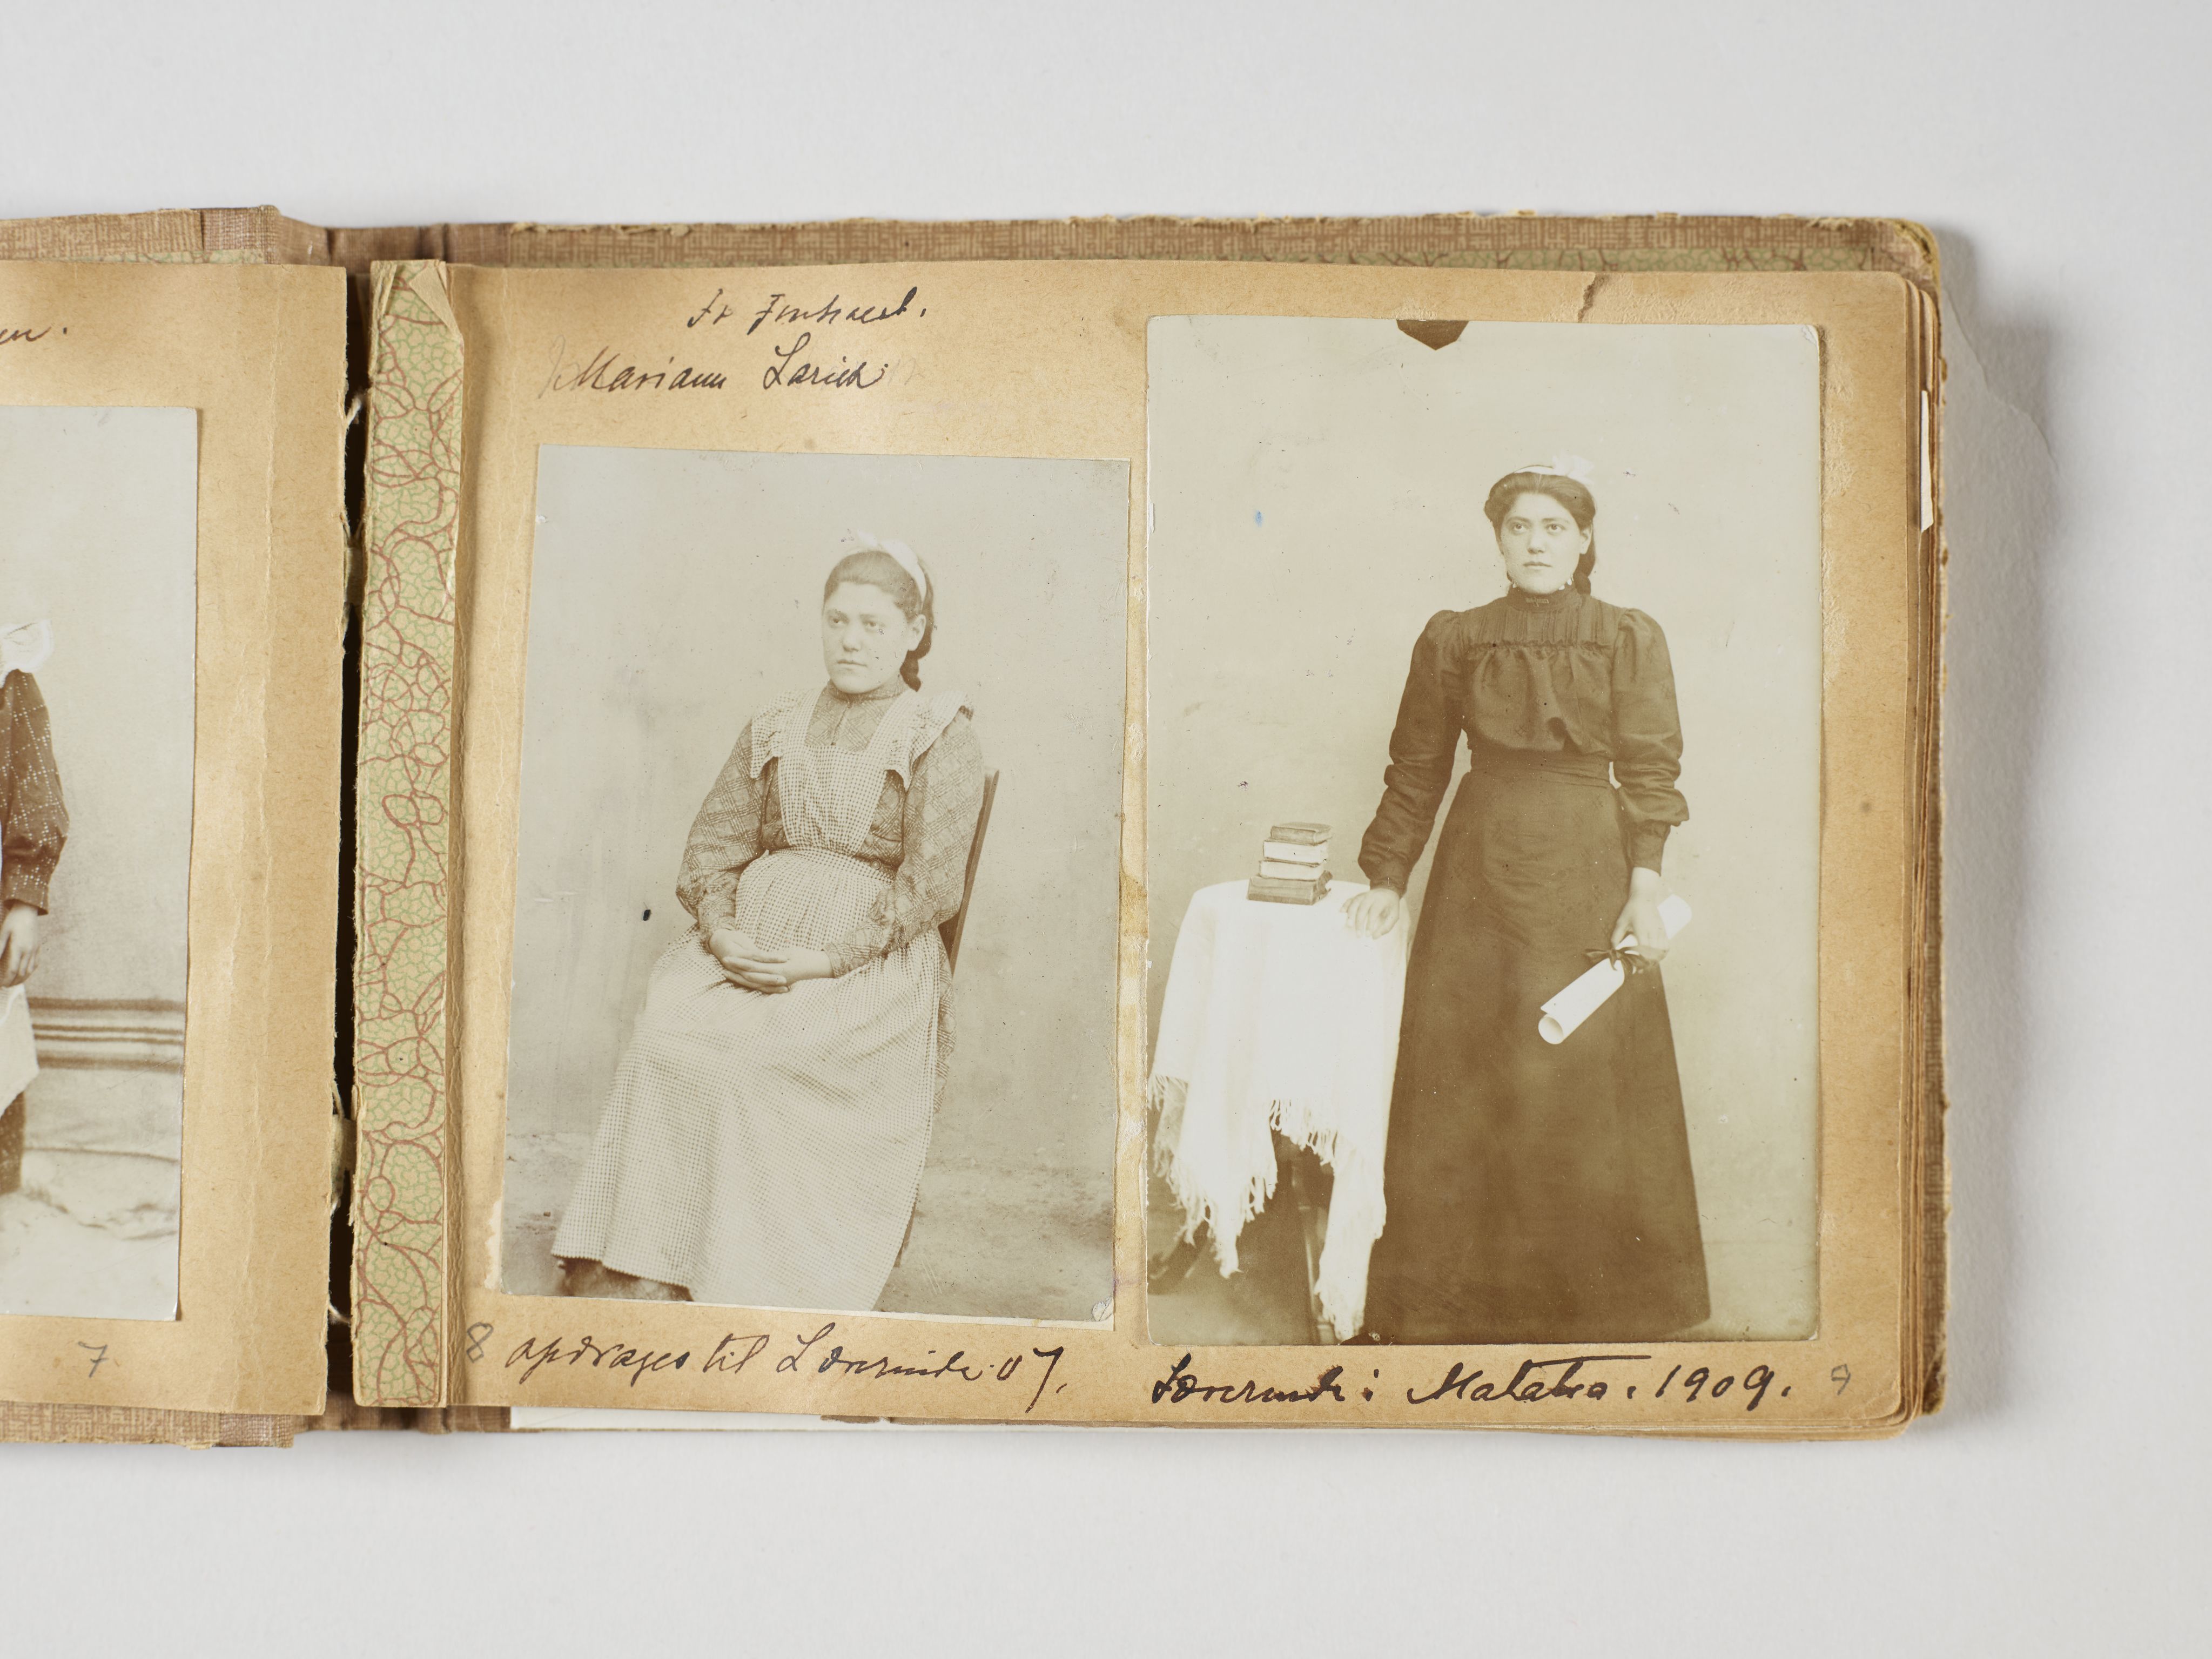 en.
7
Mariam Larich
8 opdrages til Lærerinde 07.
Lærerinde i Malatia. 1909. 9